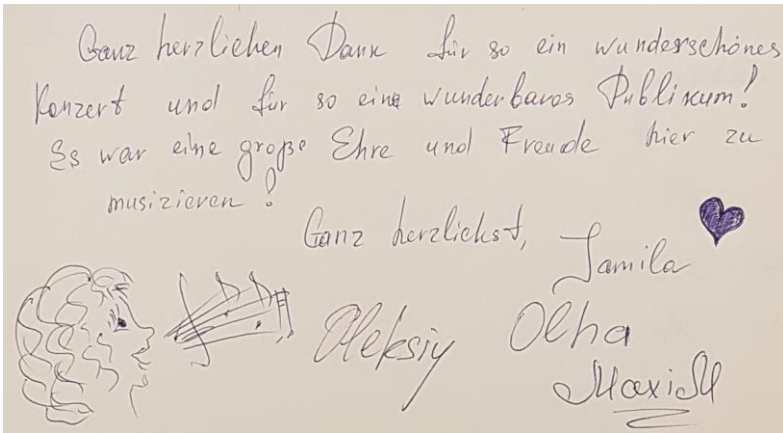 Ganz herzlichen Dank für so ein wunderschönes
Konzert und für so eine wunderbares Publikum!
Es war eine große Ehre und Freude hier zu
musizieren!
Ganz herzlichst,
Jamila
Oleksiy Olha
Maxim